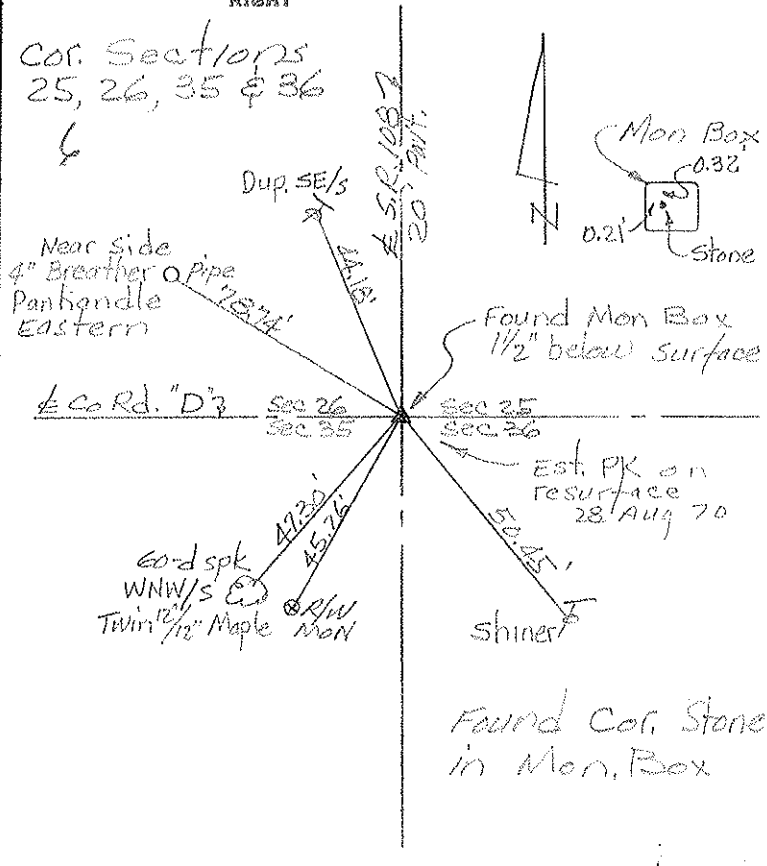 RIGHT
Cor. Sections
25, 26, 35 & 36
℄ S.R. 108
20' Pav't.
N
Mon Box
0.32'
0.21'
Stone
Dup. SE/s
44.18'
Near Side
4" Breather Pipe
Panhandle
Eastern
78.74'
Found Mon Box
1 1/2" below surface
℄ Co Rd. "D"
Sec 26
Sec 25
Sec 35
Sec 36
Est. PK on
resurface
28 Aug 70
47.30'
45.76'
50.45'
60-d spk
WNW/S
Twin 12"/12" Maple
R/W
MON
Shiner
Found Cor. Stone
in Mon. Box